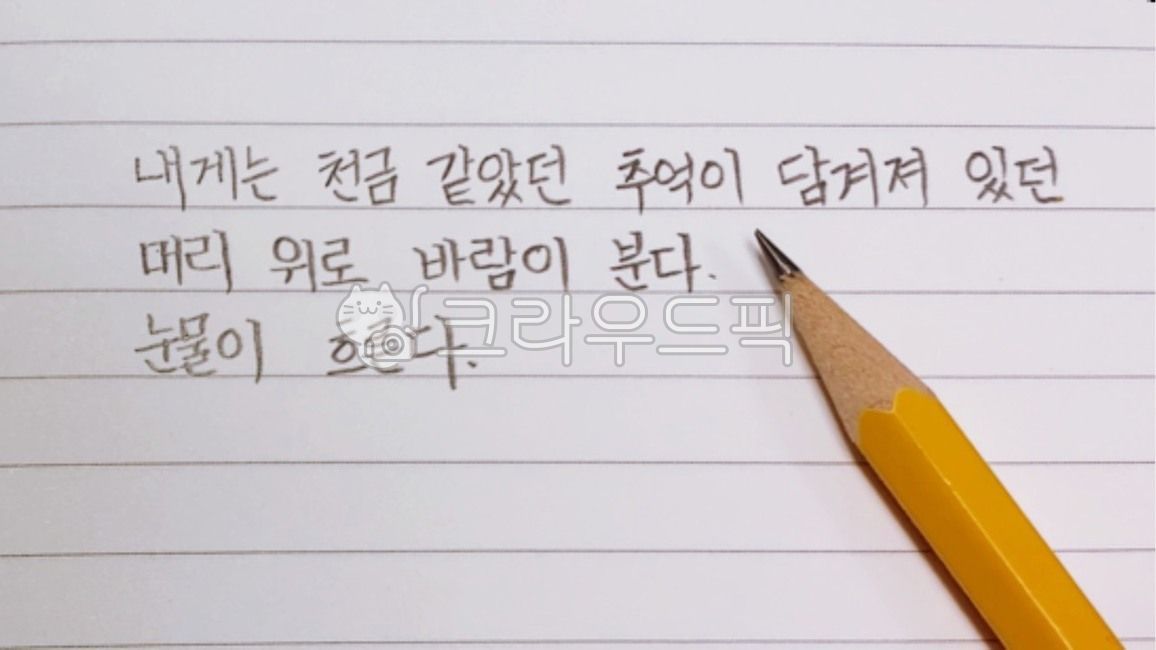 내게는 천금 같았던 추억이 담겨져 있던
머리 위로 바람이 분다.
눈물이 흐른다.
크라우드픽